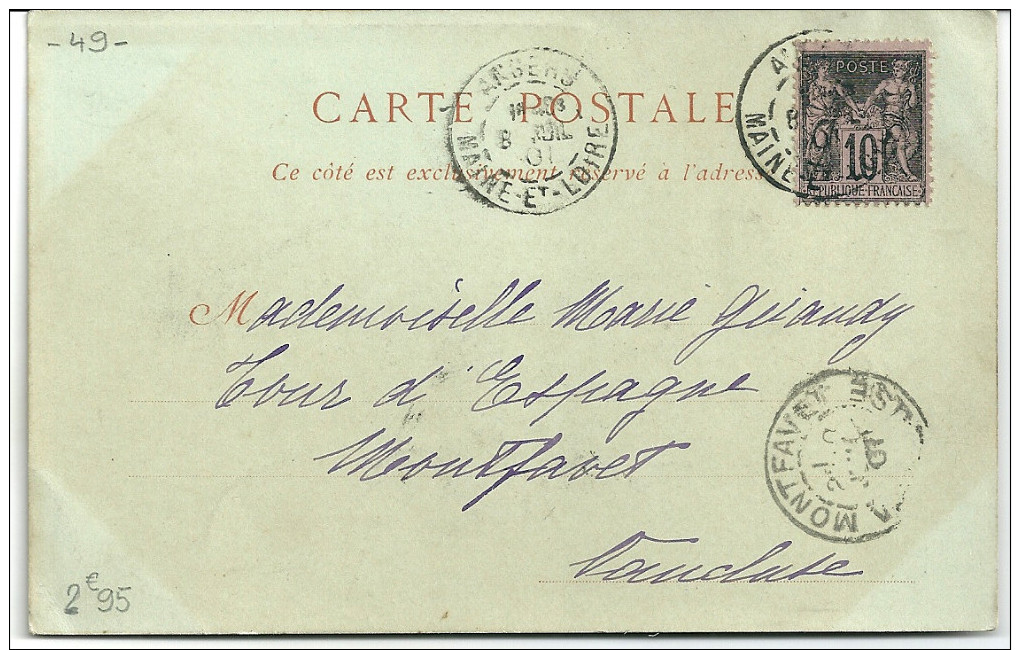 -49-
CARTE POSTALE
Ce côté est exclusivement réservé à l'adresse
ANGERS
8 JUIL
01
MAINE-ET-LOIRE
MAINE
POSTE
10
REPUBLIQUE FRANCAISE
Mademoiselle Marie
Tour d'Espagne
Montfavet
Vaucluse
MONTFAVET
2€95